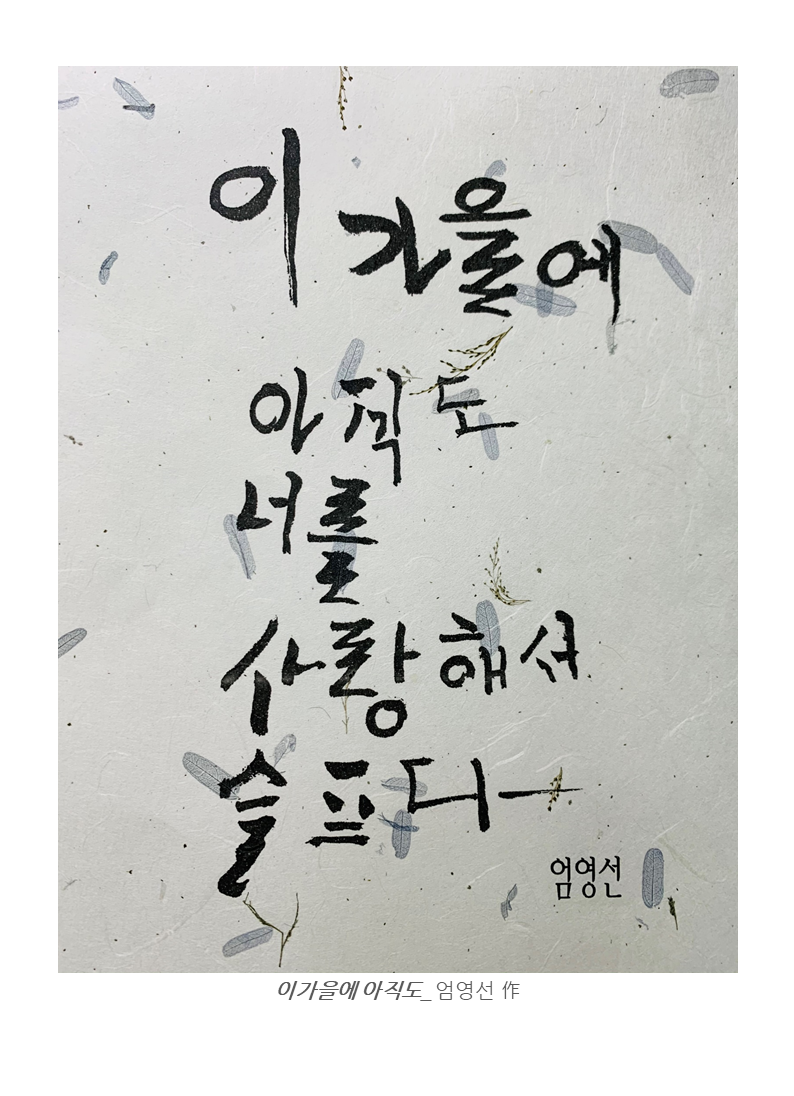 이 가을에
아직도
서로를
사랑해서
슬프다
엄영선
이가을에 아직도_ 엄영선 作